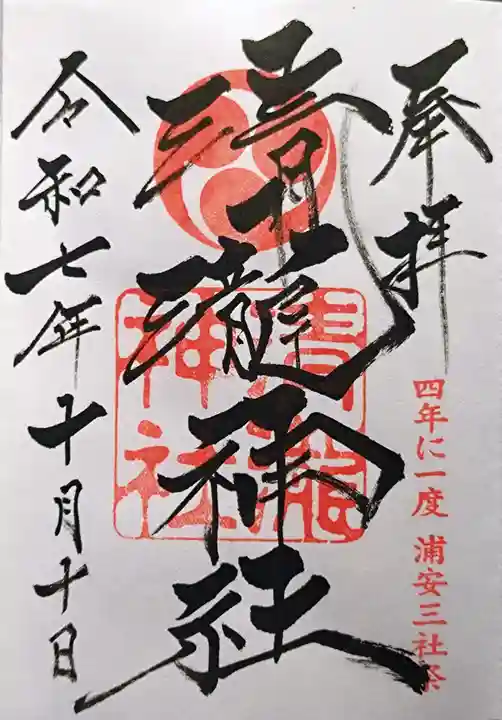 奉拝
四年に一度 浦安三社祭
清瀧神社
清瀧
神社
令和七年十月十日